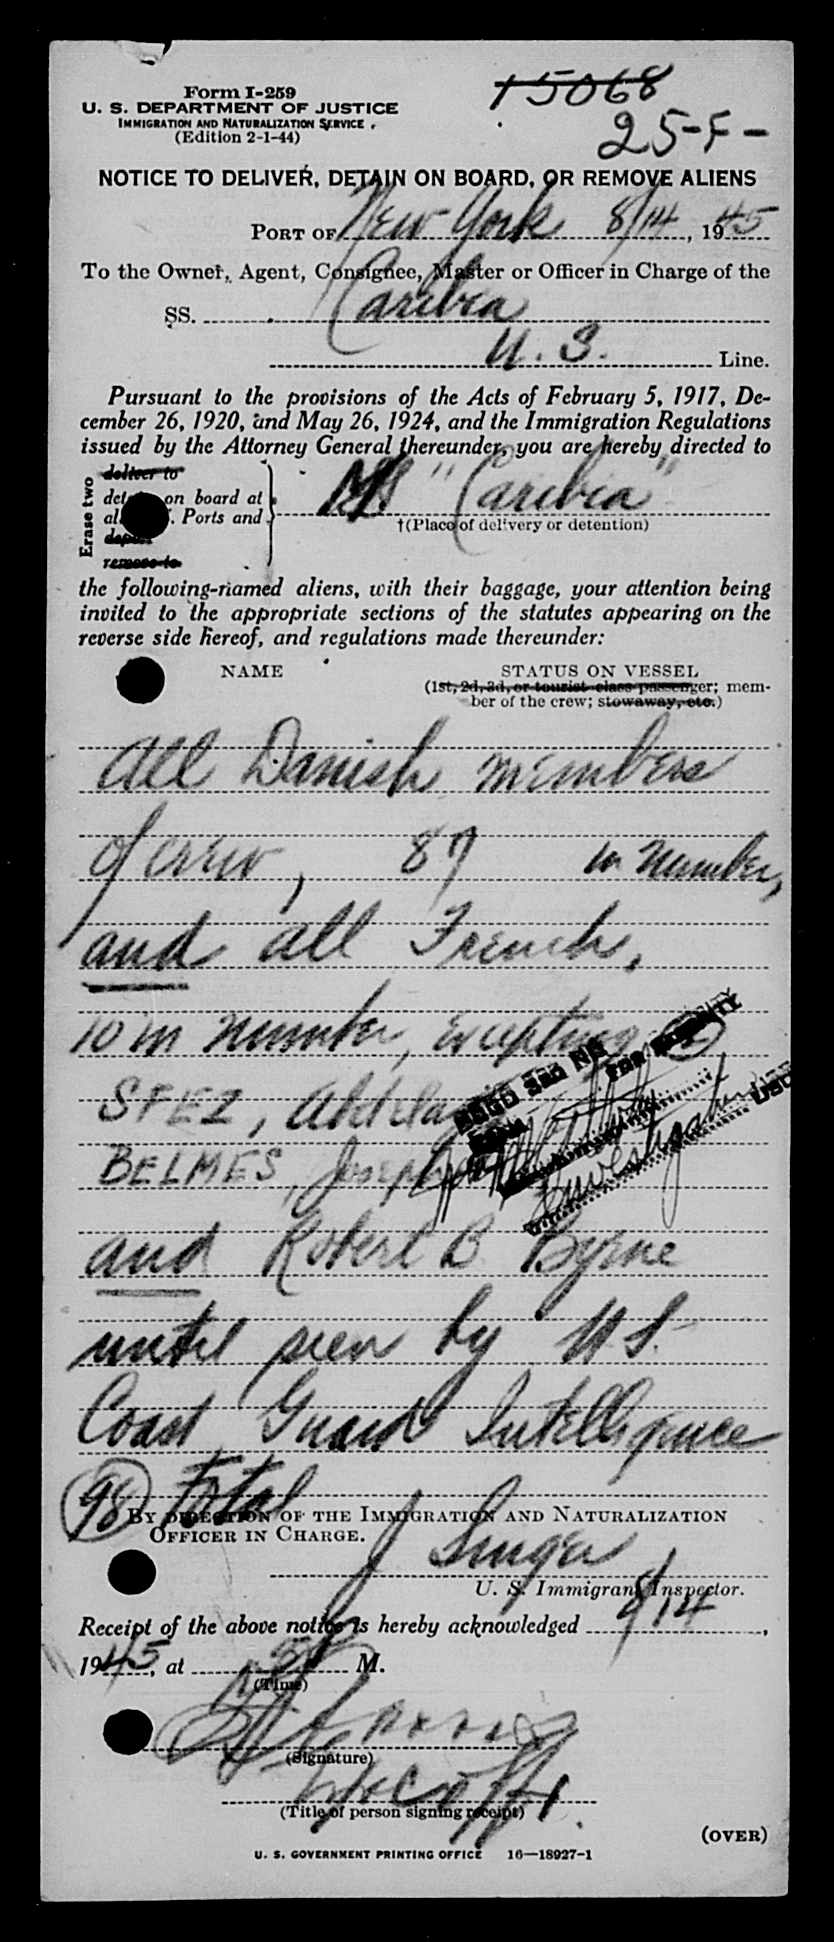 15068
25-F-
Form I-259
U. S. DEPARTMENT OF JUSTICE
IMMIGRATION AND NATURALIZATION SERVICE
(Edition 2-1-44)
NOTICE TO DELIVER, DETAIN ON BOARD, OR REMOVE ALIENS
PORT OF New York 8/14, 1945
To the Owner, Agent, Consignee, Master or Officer in Charge of the
SS. Caribia
U. S. Line.
Pursuant to the provisions of the Acts of February 5, 1917, De-
cember 26, 1920, and May 26, 1924, and the Immigration Regulations
issued by the Attorney General thereunder, you are hereby directed to
Erase two
deliver to
on board at
Ports and
remove to
"Caribia"
†(Place of delivery or detention)
the following-named aliens, with their baggage, your attention being
invited to the appropriate sections of the statutes appearing on the
reverse side hereof, and regulations made thereunder:
NAME STATUS ON VESSEL
(1st, 2d, 3d, or tourist class passenger; mem-
ber of the crew; stowaway, etc.)
All Danish members
of crew, 87 in number,
and all French,
10 in number, excepting
SFEZ,
BELMES, Joseph
and Robert B. Byrne
until seen by U.S.
Coast Guard Intelligence
98 total
BY DIRECTION OF THE IMMIGRATION AND NATURALIZATION
OFFICER IN CHARGE.
J Singer
U. S. Immigrant Inspector.
Receipt of the above notice is hereby acknowledged 8/14,
1945, at M.
(Time)
(Signature)
(Title of person signing receipt)
(OVER)
U. S. GOVERNMENT PRINTING OFFICE 16—18927-1